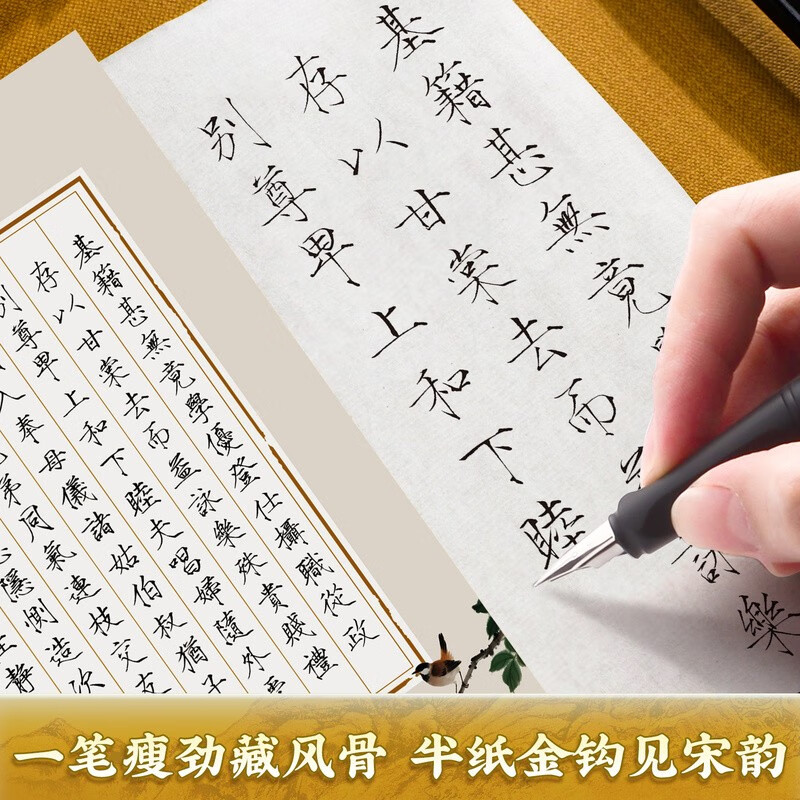 基籍甚無竟
存以甘棠去而益詠樂
別尊卑上和下睦
基籍甚無竟學優登仕攝職從政
存以甘棠去而益詠樂殊貴賤禮
別尊卑上和下睦夫唱婦隨外受
入奉母儀諸姑伯叔猶子
弟同氣連枝交友
隱惻造次
靜
一笔瘦劲藏风骨 半纸金钩见宋韵